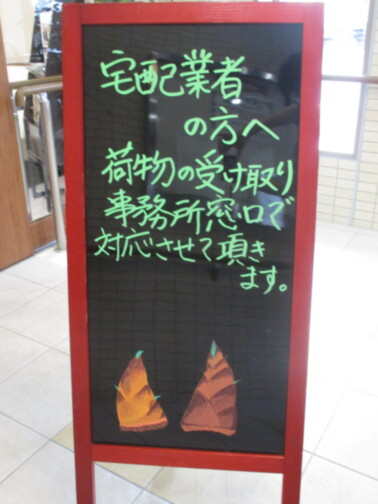 宅配業者
の方へ
荷物の受け取り
事務所窓口で
対応させて頂き
ます。